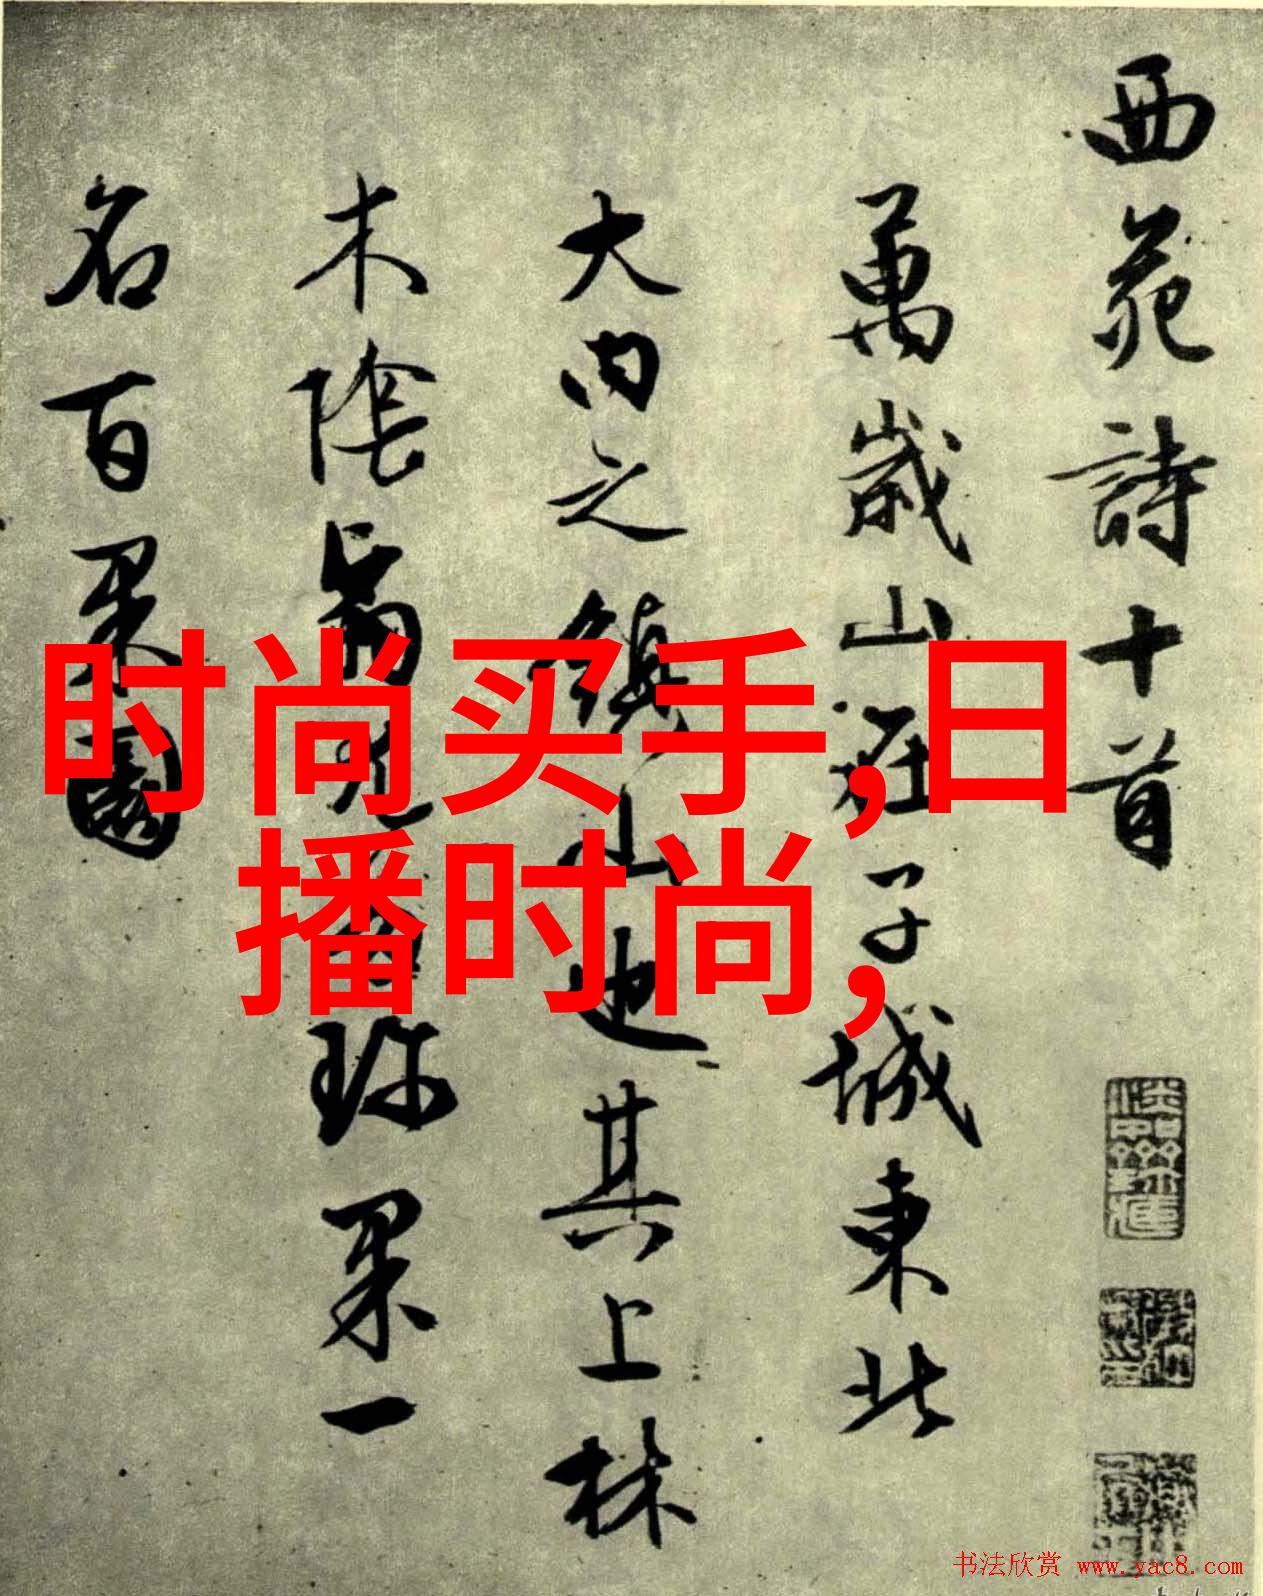 西苑詩十首
萬歲山在子城東北
大內之鎮山也其上林
木陰翳尤多珍果一
名百果園
时尚买手,日
播时尚,
书法欣赏 www.yac8.com